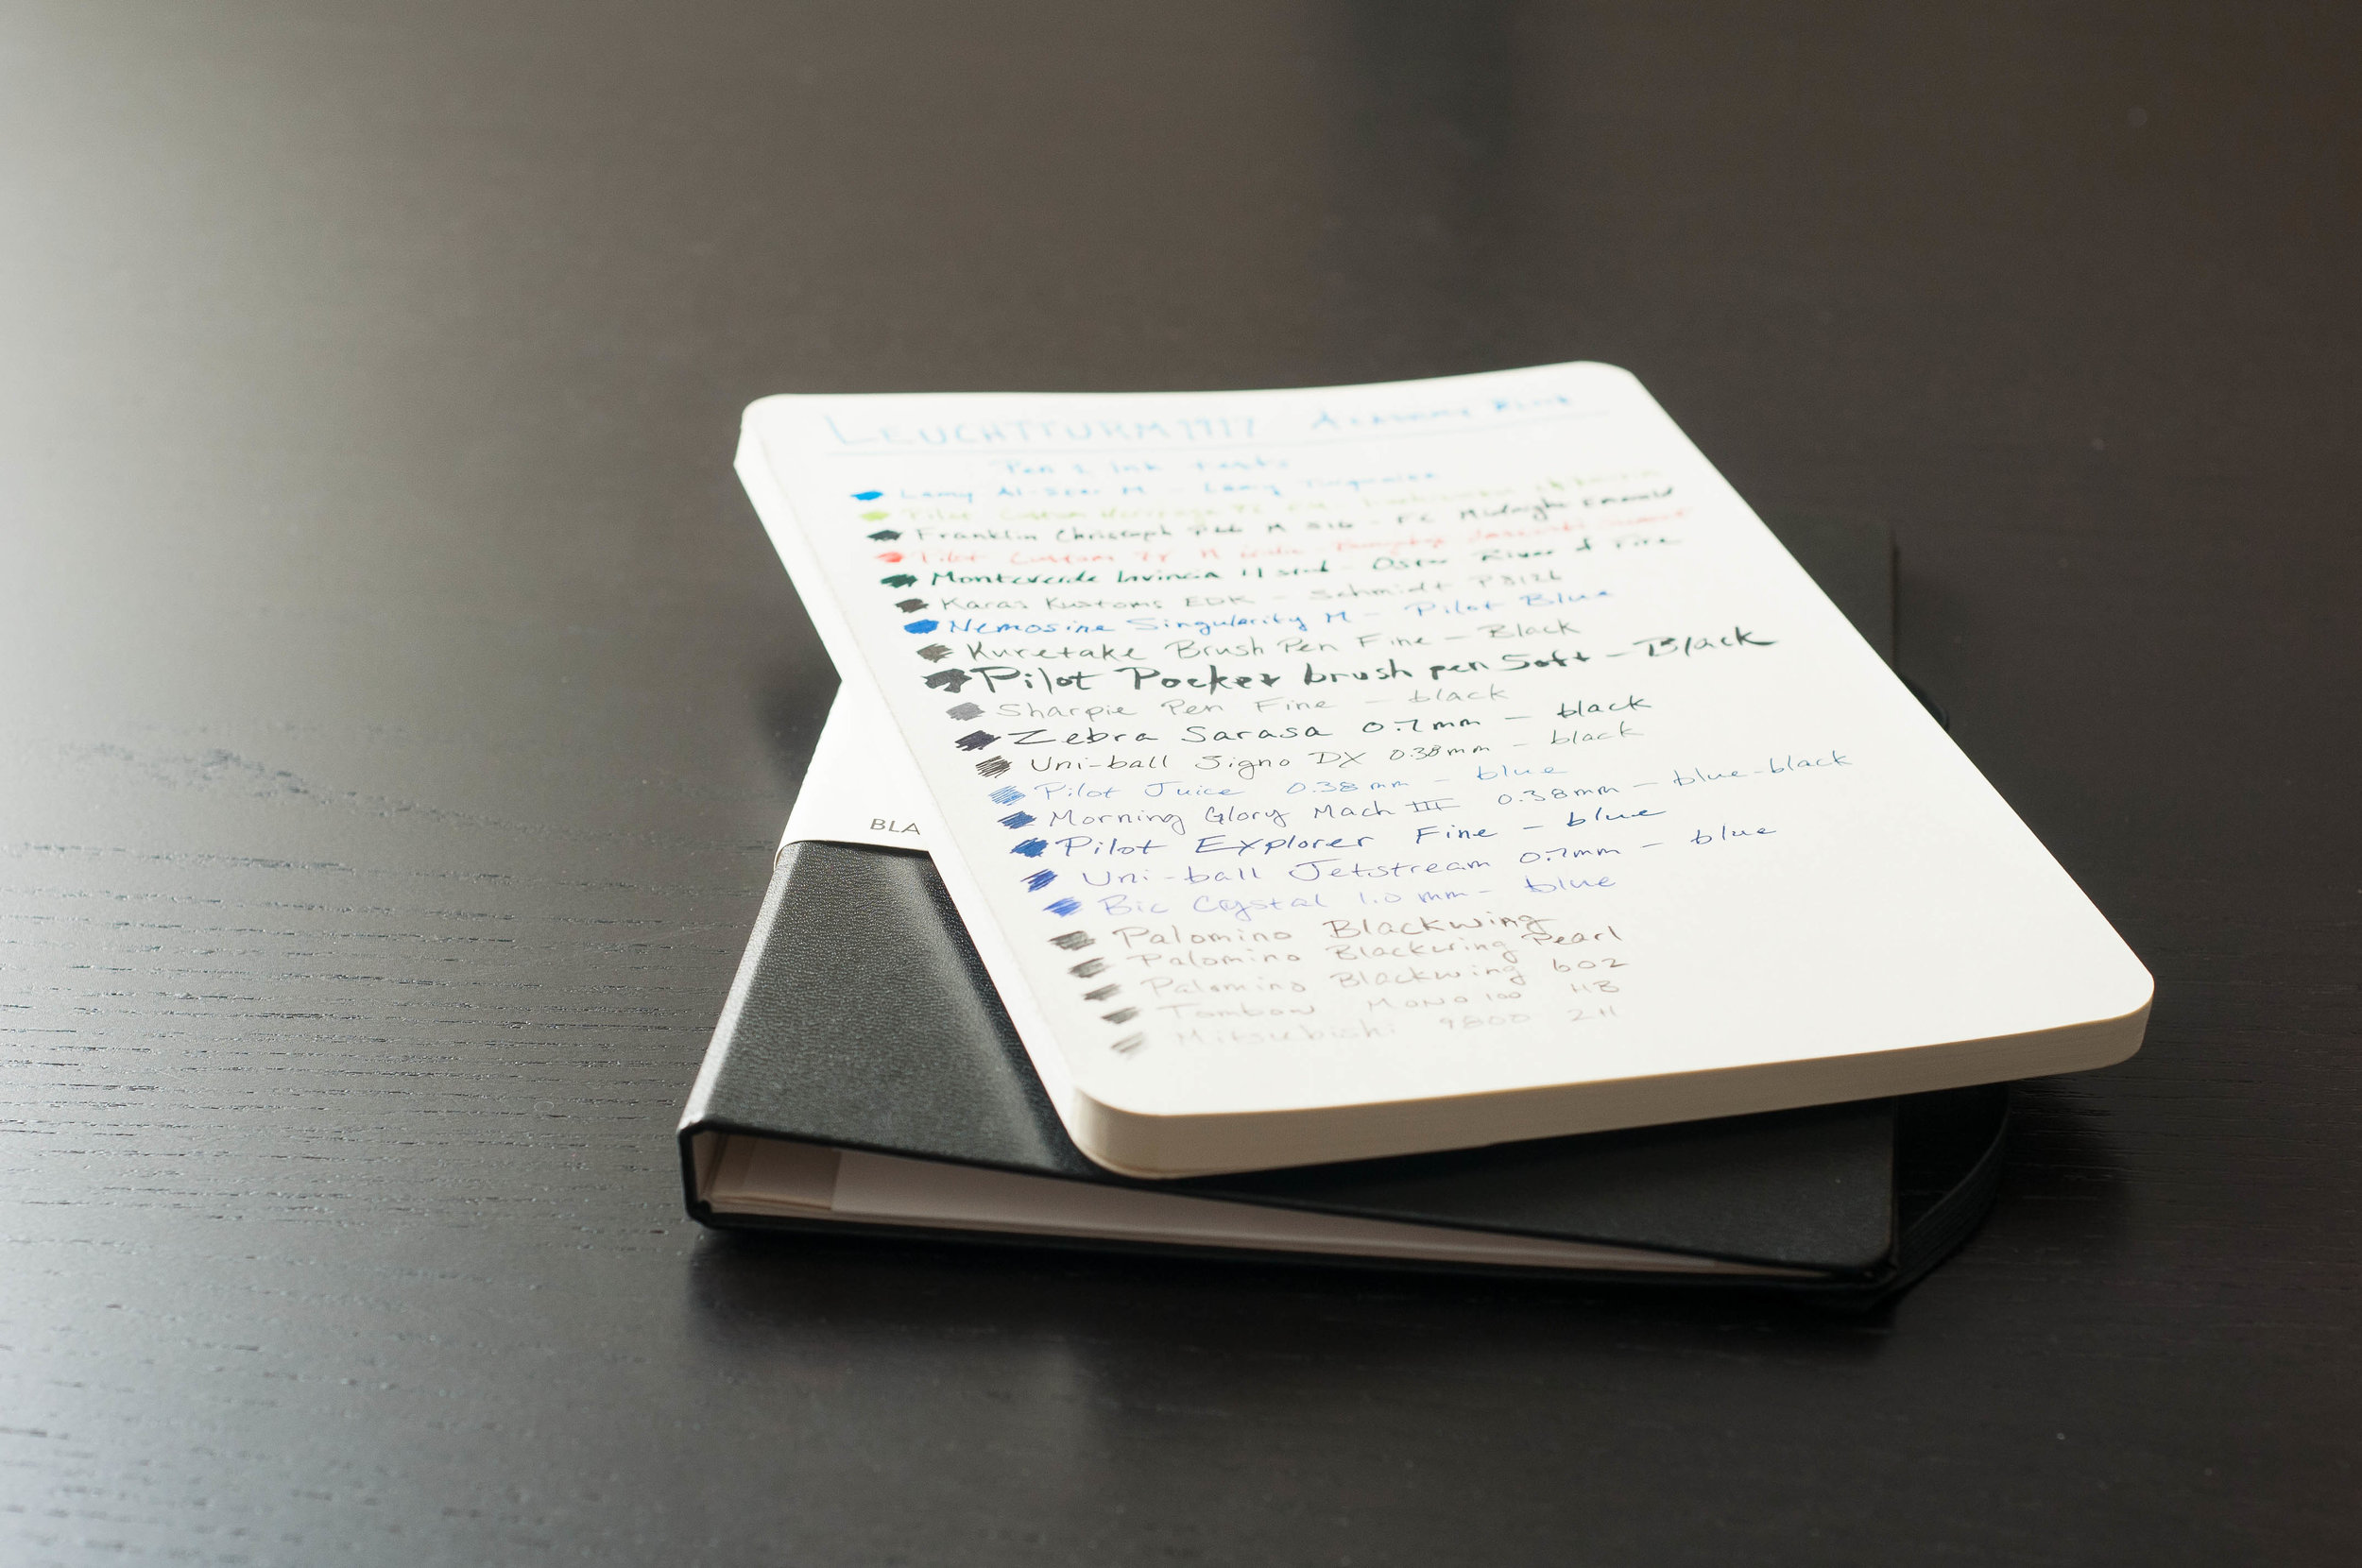 LEUCHTTURM1917
Pen & Ink Tests
Lamy Al-Star M - Lamy Turquoise
Pilot Custom Heritage
Franklin Christoph M - FC Midnight Emerald
Pilot Custom 74 M
Monteverde Invincia - Oster River of Fire
Karas Kustoms EDK - Schmidt P8126
Nemosine Singularity M - Pilot Blue
Kuretake Brush Pen Fine - Black
Pilot Pocket brush pen Soft - Black
Sharpie Pen Fine - black
Zebra Sarasa 0.7mm - black
Uni-ball Signo DX 0.38mm - black
Pilot Juice 0.38mm - blue
Morning Glory Mach III 0.38mm - blue-black
Pilot Explorer Fine - blue
Uni-ball Jetstream 0.7mm - blue
Bic Crystal 1.0mm - blue
Palomino Blackwing
Palomino Blackwing Pearl
Palomino Blackwing 602
Tombow MONO 100 HB
Mitsubishi 9800 2H
BLA